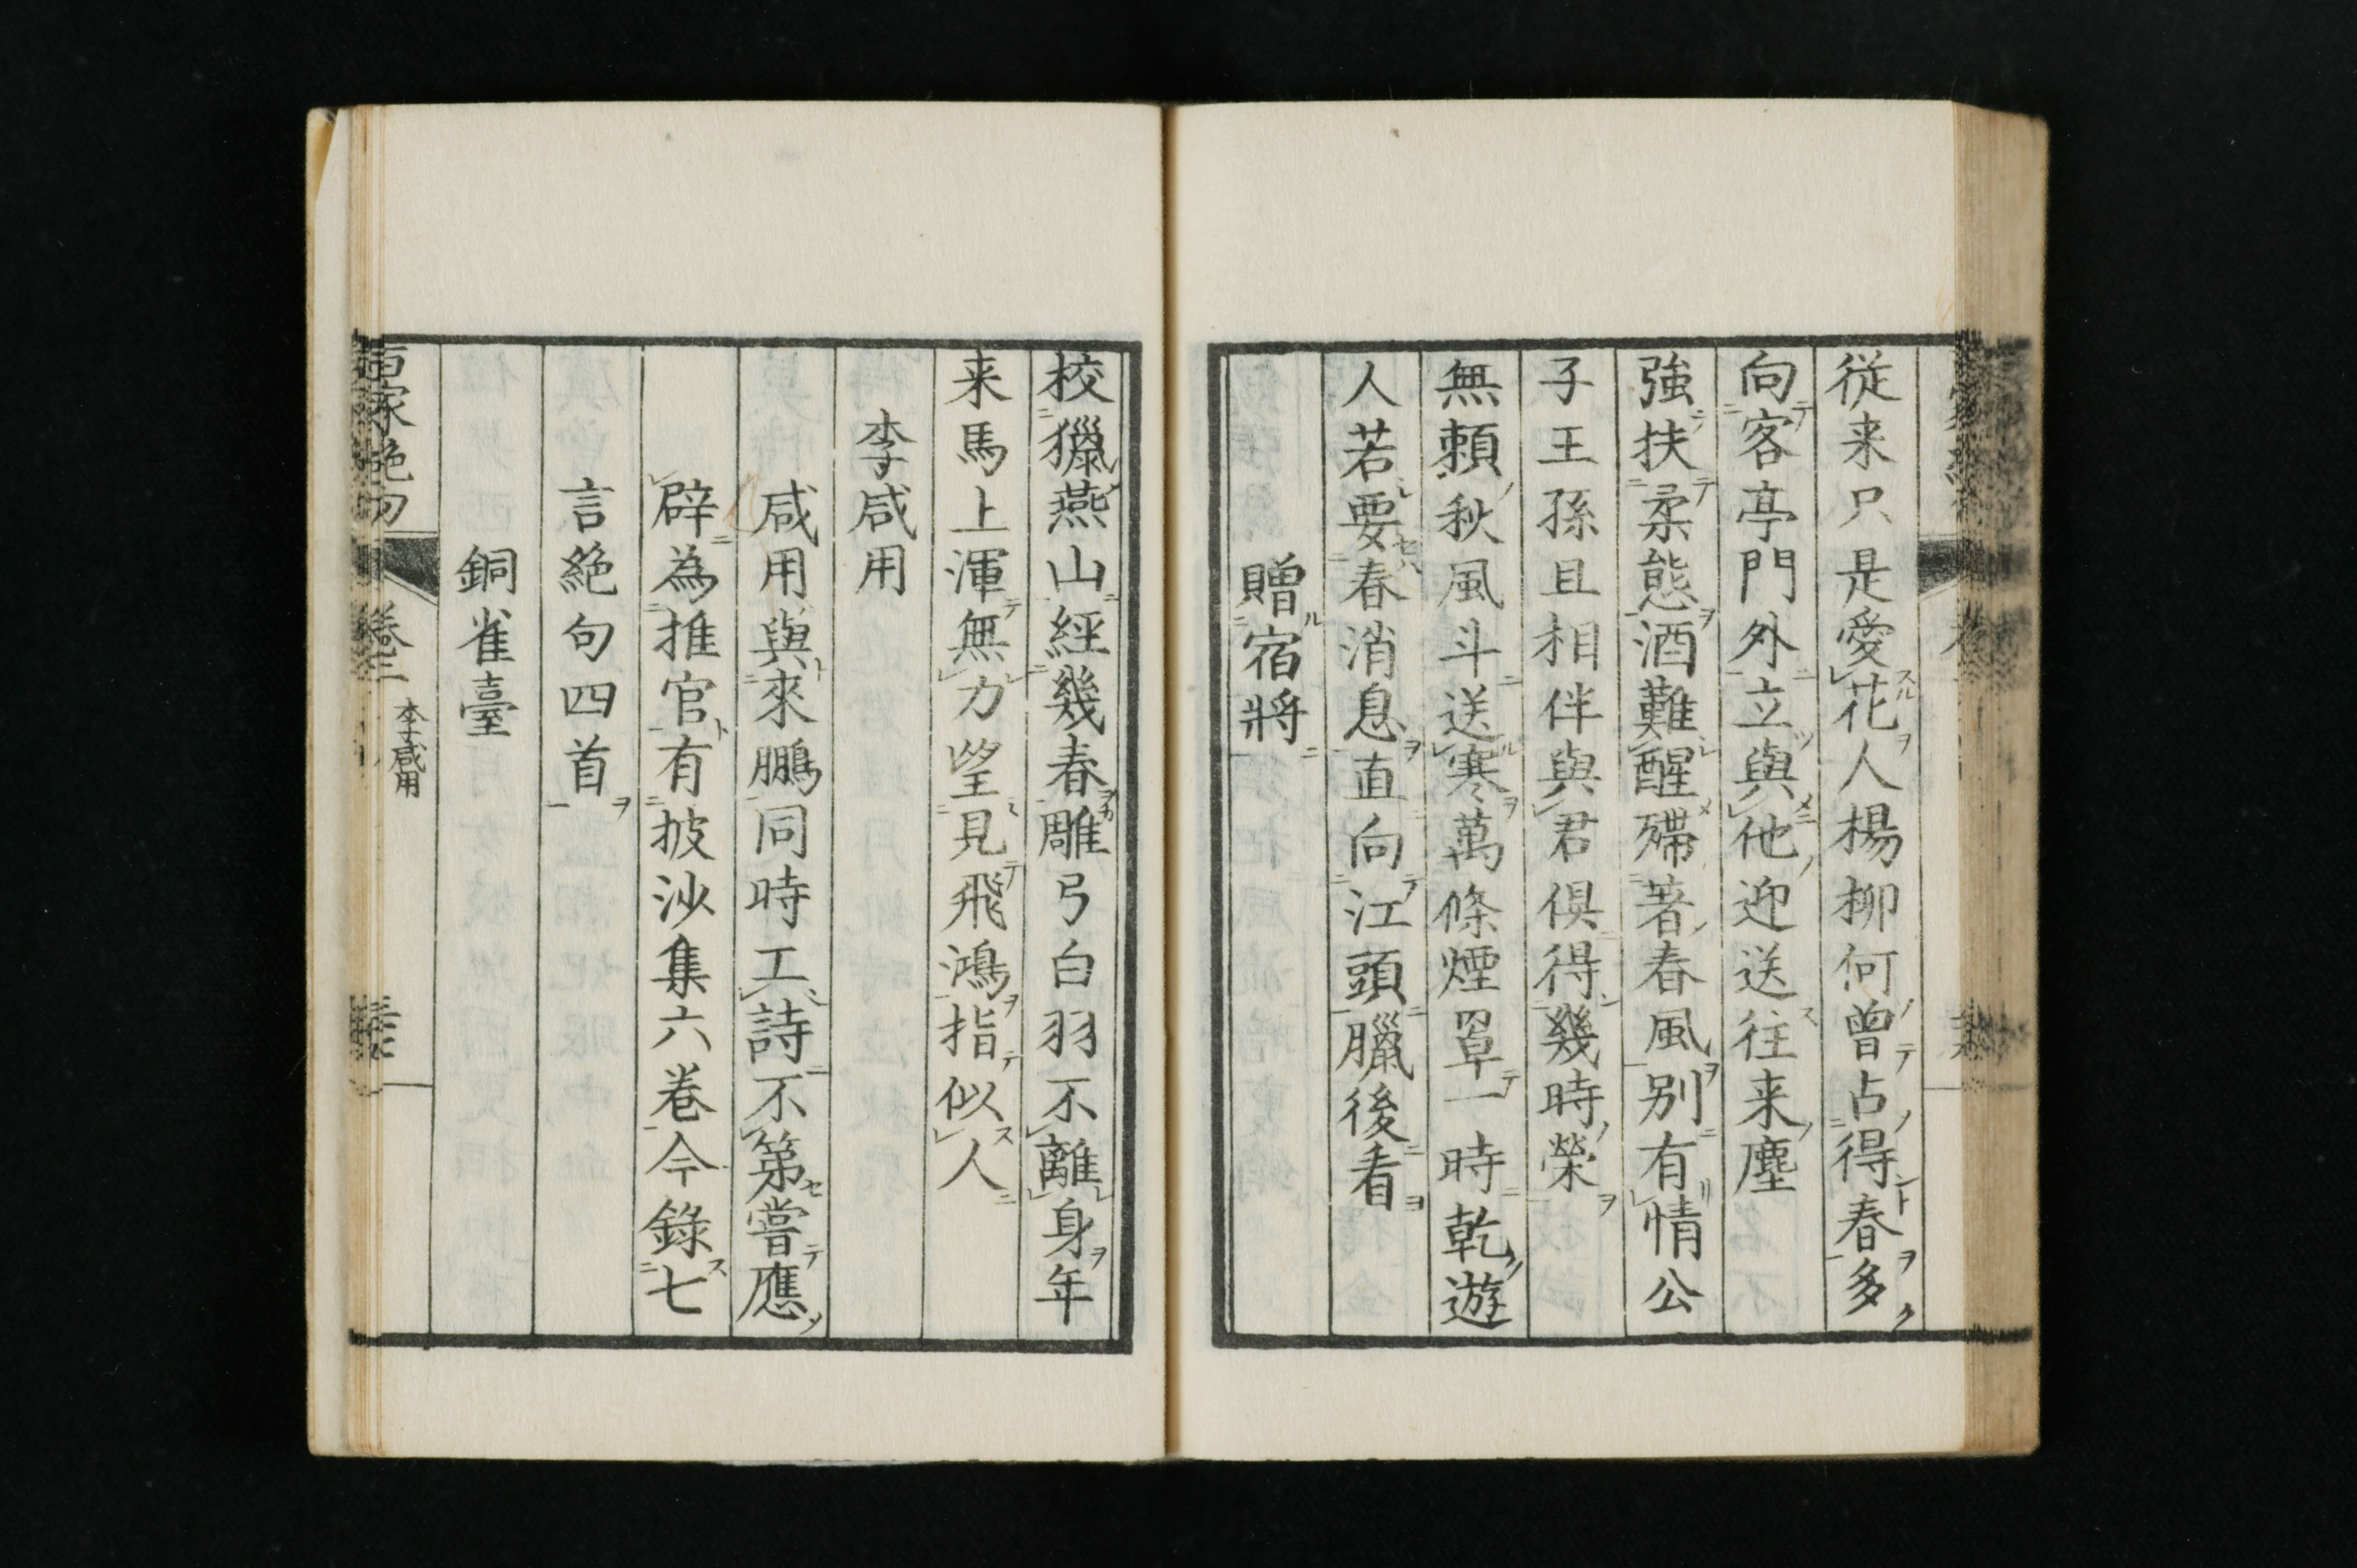 従来只是愛花人楊柳何曽占得春多
向客亭門外立與他迎送往来塵
強扶柔態酒難醒殢著春風别有情公
子王孫且相伴與君俱得幾時榮
無頼秋風斗送寒萬條煙罩一時乾遊
人若要春消息直向江頭臘後看
贈宿將
校獵燕山經幾春雕弓白羽不離身年
来馬上渾無力望見飛鴻指似人
李咸用
咸用與來鵬同時工詩不第嘗應
辟為推官有披沙集六巻今錄七
言絶句四首
銅雀臺
百家絶句
巻三
李咸用